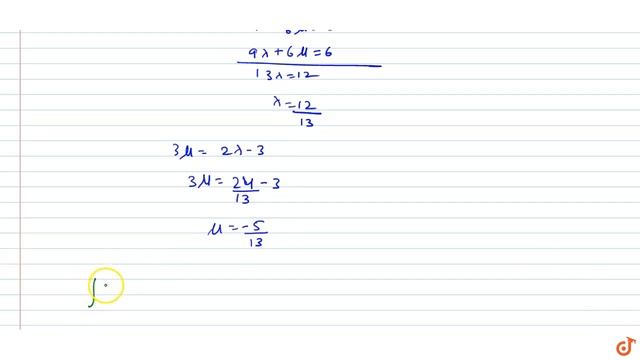 9λ+6μ=6
13λ=12
λ=12/13
3μ= 2λ-3
3μ= 24/13 -3
μ=-5/13
∫